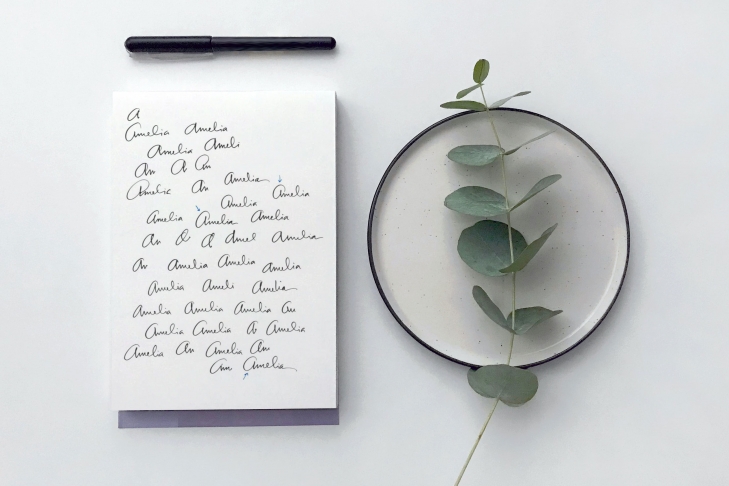 A
Amelia Amelia
Amelia Ameli
Am A Am
Amelia Am Amelia Amelia
Amelia
Amelia Amelia Amelia
Am A A Amel Amelia
Am Amelia Amelia Amelia
Amelia Ameli Amelia
Amelia Amelia Amelia Am
Amelia Amelia A Amelia
Amelia Am Amelia Am
Am Amelia